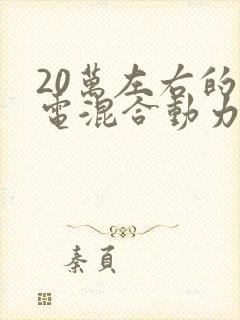 20萬左右的
電混合動力
秦頁